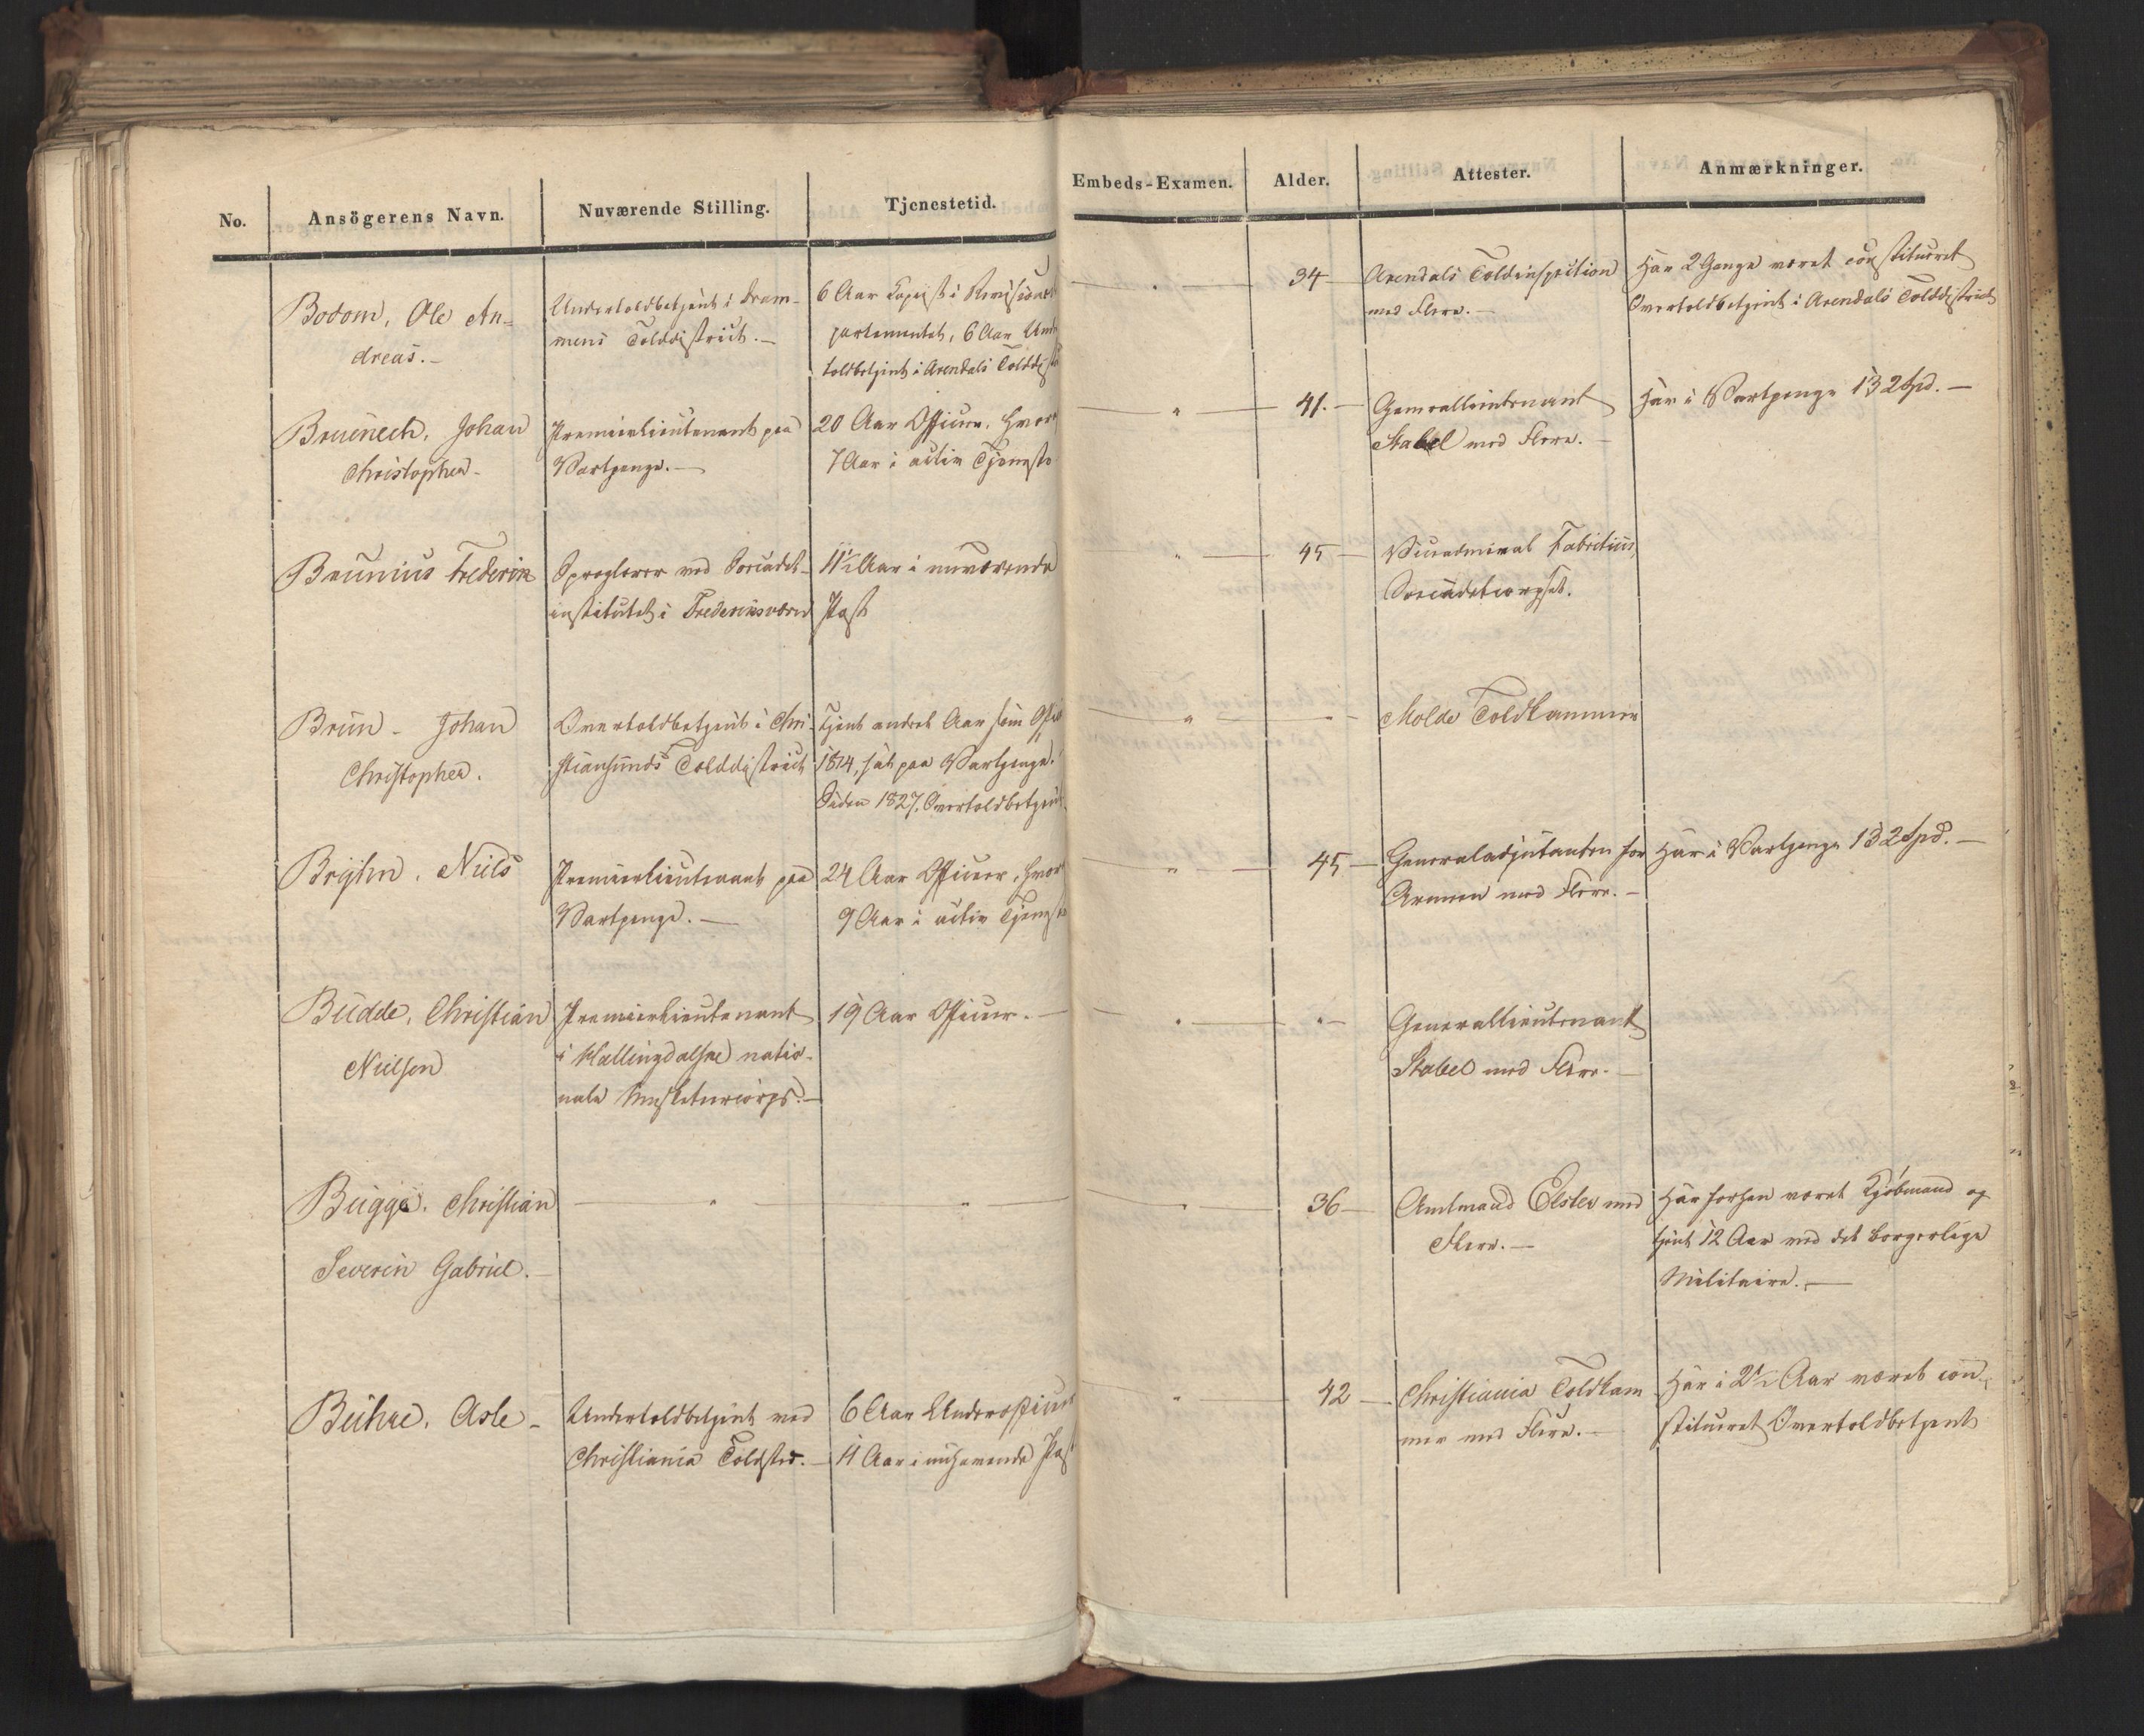 No.
Ansögerens Navn.
Nuværende Stilling.
Tjenestetid.
Embeds-Examen.
Alder.
Attester.
Anmærkninger.
Bodom, Ole An-
dreas.-
Undertoldbetjent i Dram-
mens Tolddistrict.-
6 Aar Copist i Revisions
partementet, 6 Aar Und
toldbetjent i Arendals Tolddist
34
Arendals Toldinspection
med Flere.-
Har 2 Gange været constitueret
Overtoldbetjent i Arendals Tolddistrict
Bruenech, Johan
Christopher-
Premierlieutenant paa
Vartpenge.-
20 Aar Officier, hvor
7 Aar i activ Tjeneste
41.-
Generallieutenant
Stabel med Flere.-
Har i Vartpenge 132 Spd.-
Brunius Frederik
Sproglærer ved Søcadet-
institutet i Frederiksværn
11½ Aar i nuværende
Post
45-
Viceadmiral Fabritius,
Søcadetcorpset.
Brün- Johan
Christopher.
Overtoldbetjent i Chri-
stiansunds Tolddistrict
Tjent endeel Aar som Offi
1814, sat paa Vartpenge.
Siden 1827, Overtoldbetjent.
Molde Toldkammer
Bryhn, Niels
Premierlieutenant paa
Vartpenge.-
24 Aar Officier, hvor
9 Aar i activ Tjeneste
45-
Generaladjutanten for
Armeen med Flere.-
Har i Vartpenge 132 Spd.-
Budde, Christian
Nielsen
Premierlieutenant
i Hallingdalske natio-
nale Musketeercorps.-
19 Aar Officier.-
Generallieutenant
Stabel med Flere.-
Bugge, Christian
Severin Gabriel.-
36-
Amtmand Elster med
Flere.-
Har forhen været Kjöbmand og
tjent 12 Aar ved det borgerlige
Militaire.-
Buhre, Asle-
Undertoldbetjent ved
Christiania Toldsted.-
6 Aar Underofficier
11 Aar i nuhavende Post
42-
Christiania Toldkam
mer med Flere.-
Har i 2½ Aar været con-
stitueret Overtoldbetjent